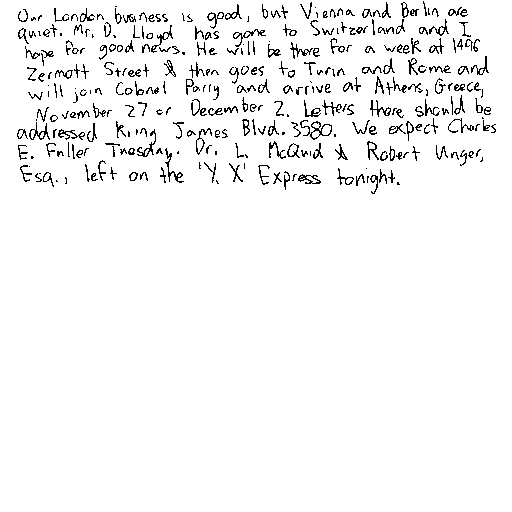 Our London business is good, but Vienna and Berlin are
quiet. Mr. D. Lloyd has gone to Switzerland and I
hope for good news. He will be there for a week at 1496
Zermott Street & then goes to Turin and Rome and
will join Colonel Parry and arrive at Athens, Greece,
November 27 or December 2. Letters there should be
addressed King James Blvd. 3580. We expect Charles
E. Fuller Tuesday. Dr. L. McQuid & Robert Unger,
Esq., left on the 'Y. X' Express tonight.